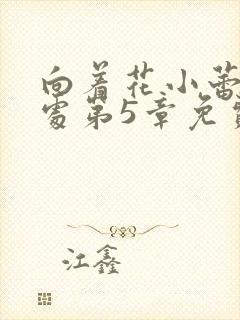 向着花小蕾
处第5章免费
江鑫